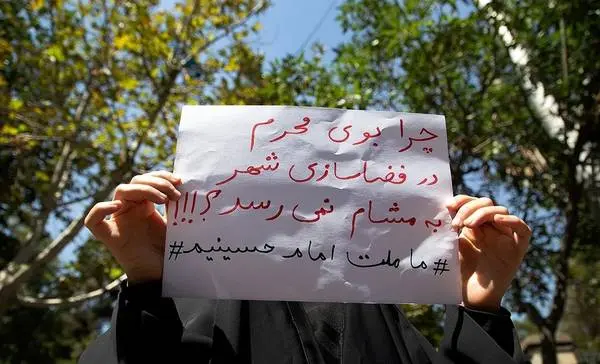 چرا بوی محرم
در فضاسازی شهر
به مشام نمی رسد؟!!!
#ما ملت امام حسینیم#